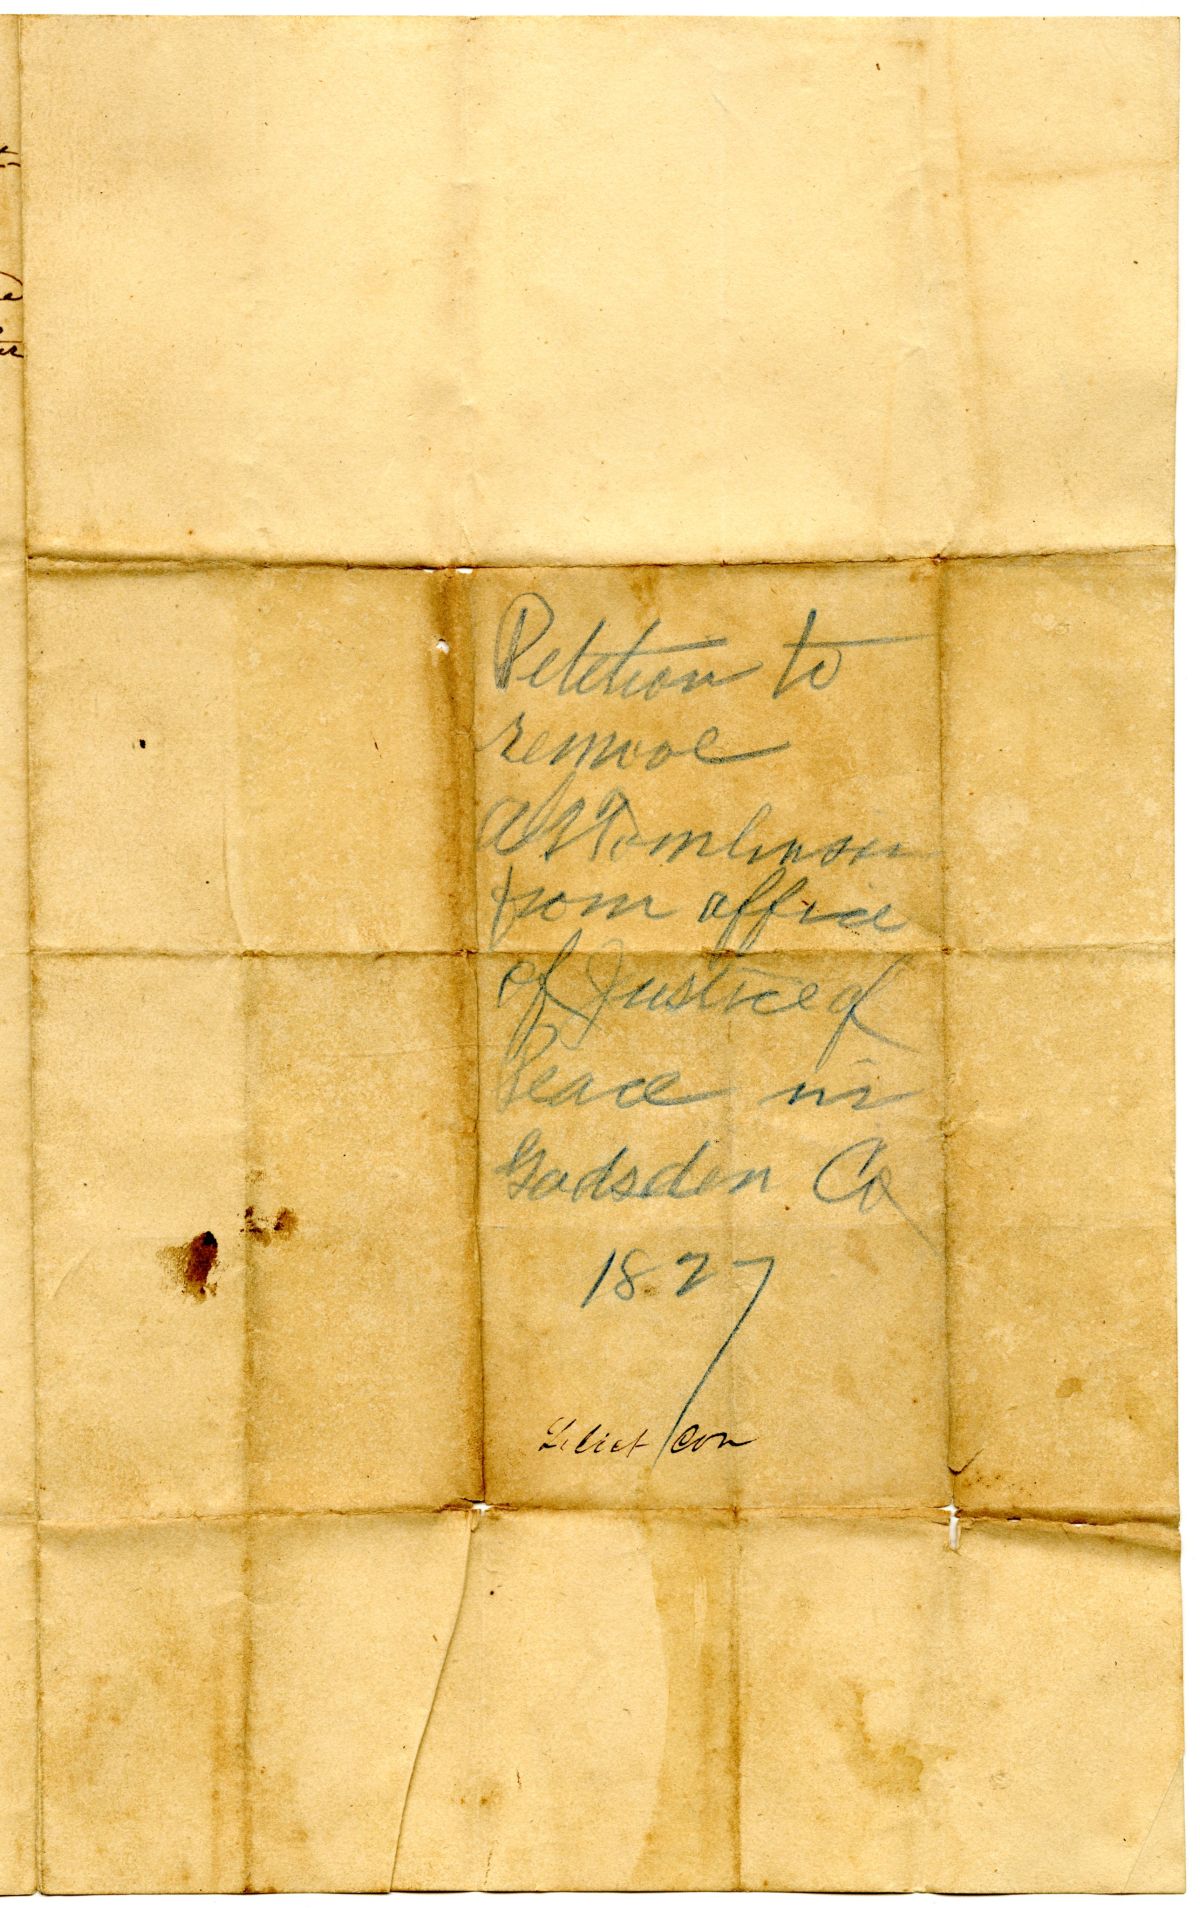 Petition to
remove
A S Tomlinson
from office
of Justice of
Peace in
Gadsden Co
1827
Con